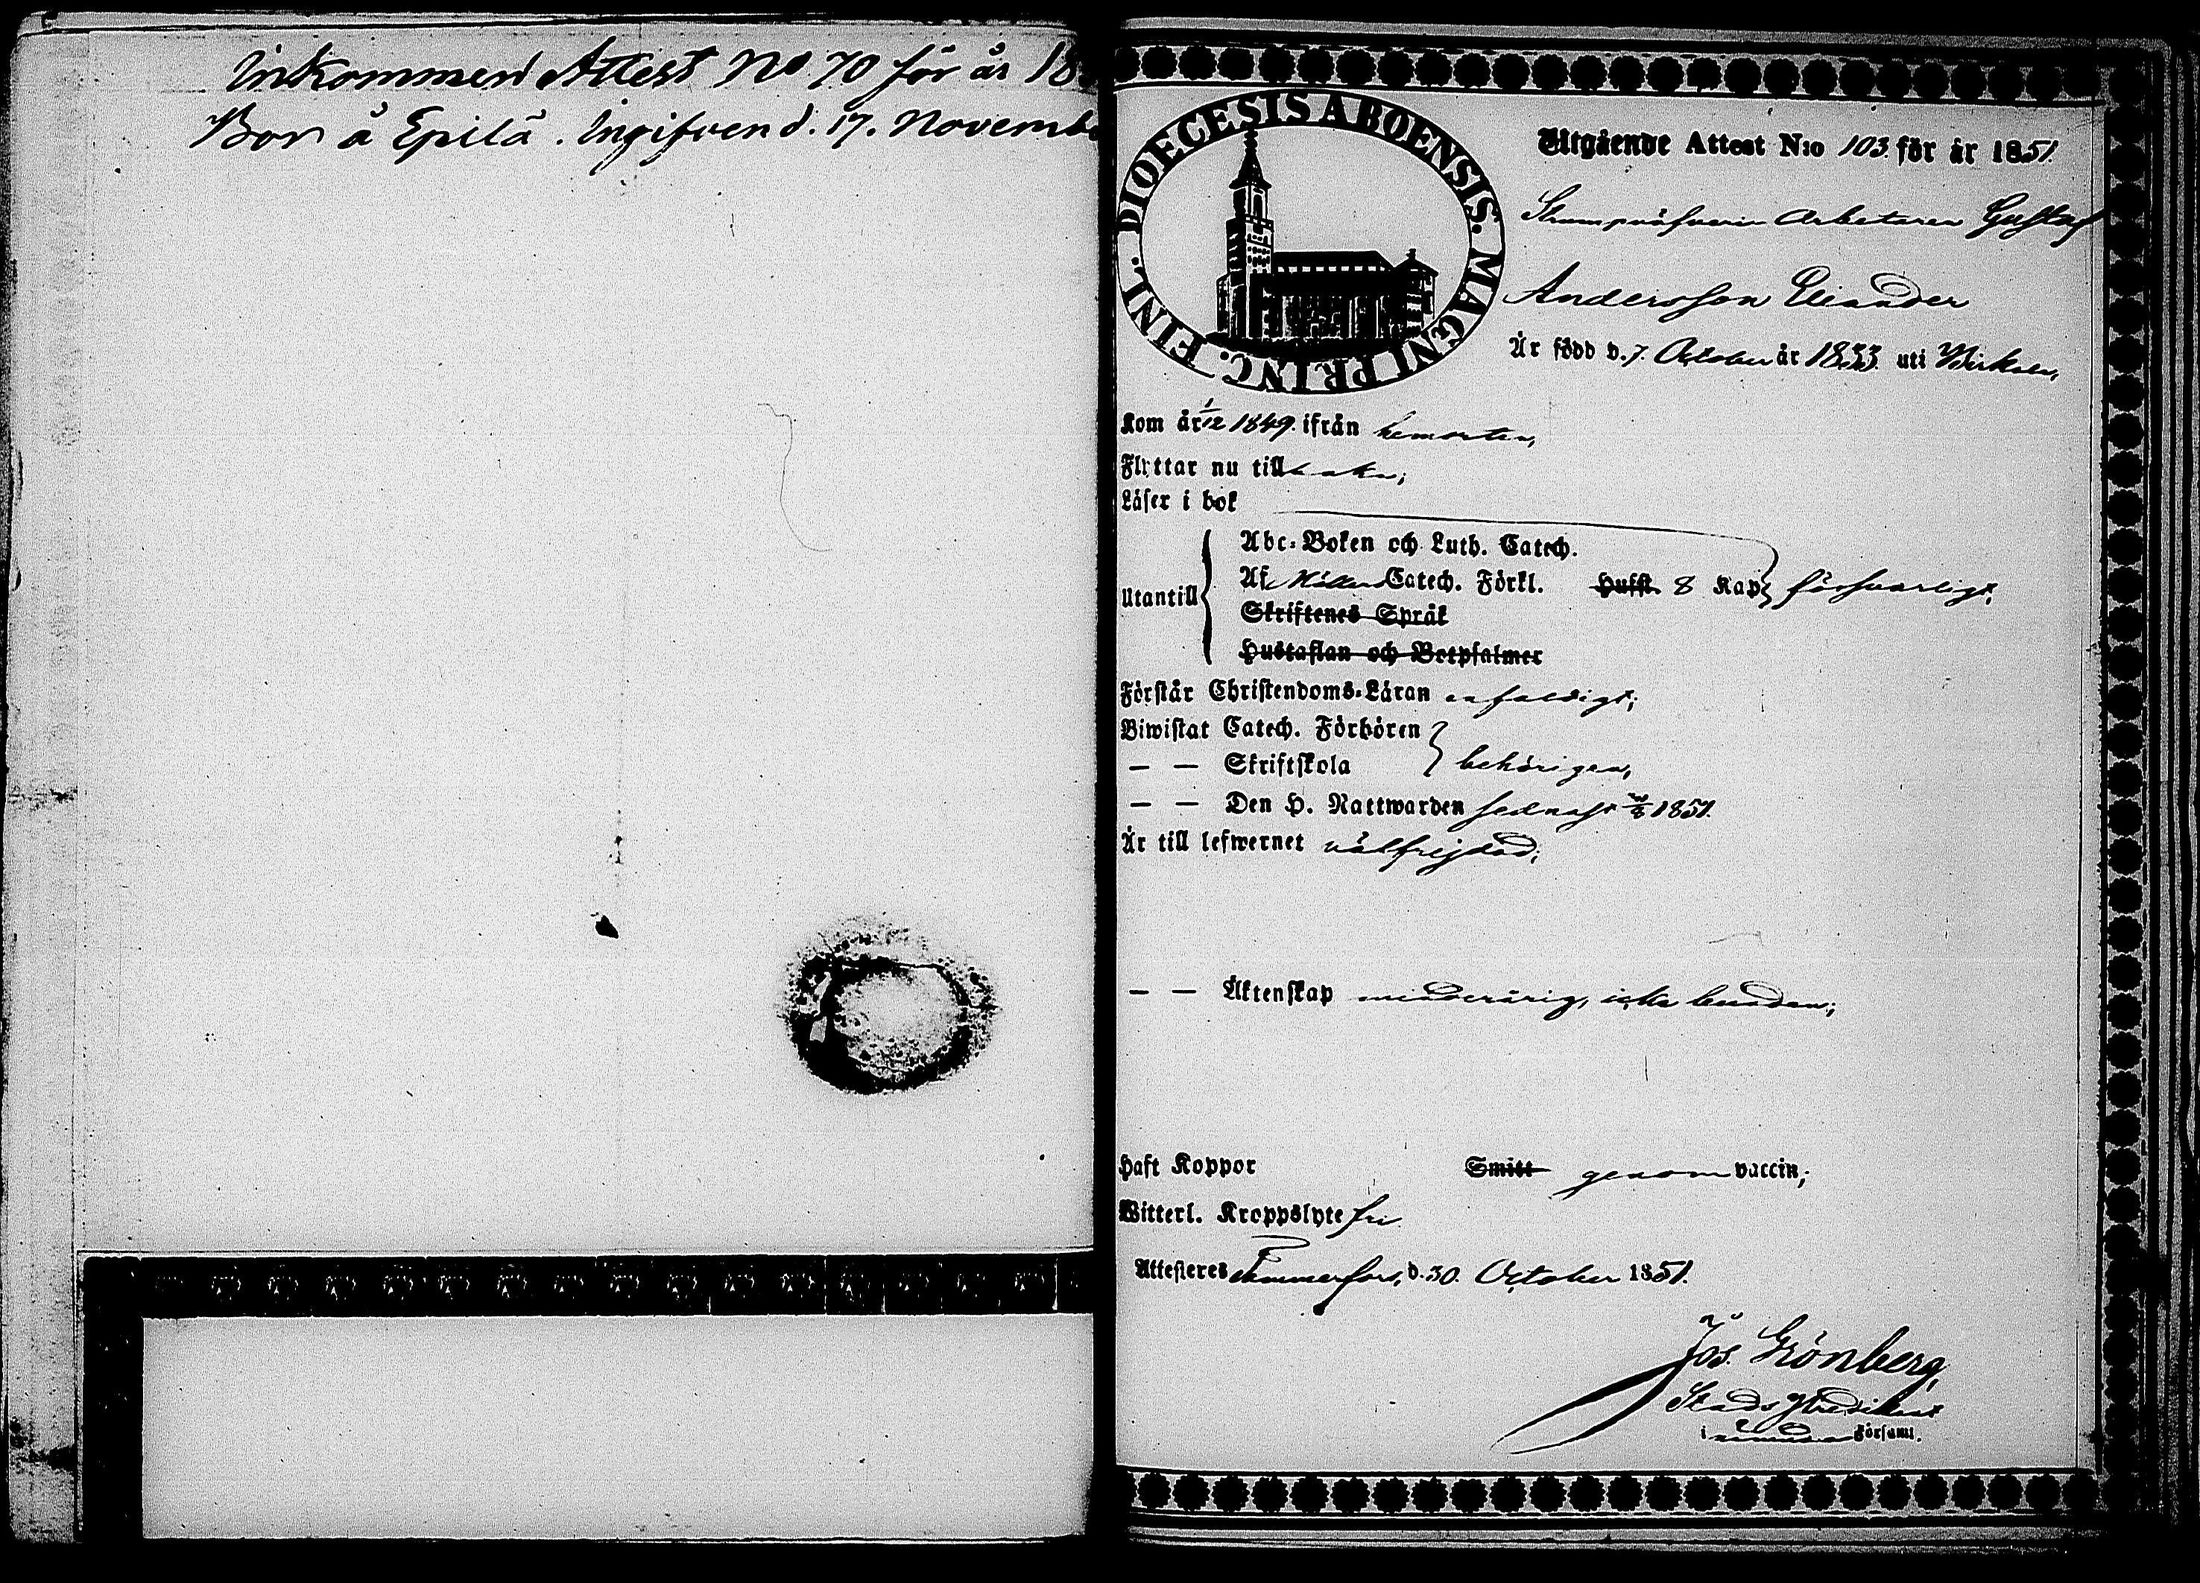 Inkommen Attest No 70 för år 18
Bor å Epilä. Ingifven d. 17. Novemb
DIOECESIS ABOENSIS. MAGNI PRINC. FINL.
Utgående Attest N:o 103. för år 1851.
Arbetaren Gustaf
Andersson
Är född d. 7. October år 1833. uti Birkala,
Kom år 1/12 1849. ifrån hemorten,
Flyttar nu till
Läser i bok
Abc-Boken och Luth. Catech.
Utantill Af Catech. Förkl. Hufst. 8 Kap försvarligt;
Skriftenes Språk
Hustaflan och Botpsalmer
Förstår Christendoms-Läran enfaldigt;
Biwistat Catech. Förhören
— — Skriftskola behörigen,
— — Den H. Nattwarden sednast 1851.
Är till lefwernet välfrejdad;
— — Äktenskap minderårig, icke bunden;
Haft Koppor Smitt genom vaccin;
Witterl. Kroppslyte fri
Attesteras Tammerfors, d. 30. October 1851.
Jos. Grönberg,
Stads Predikant
i Församl.